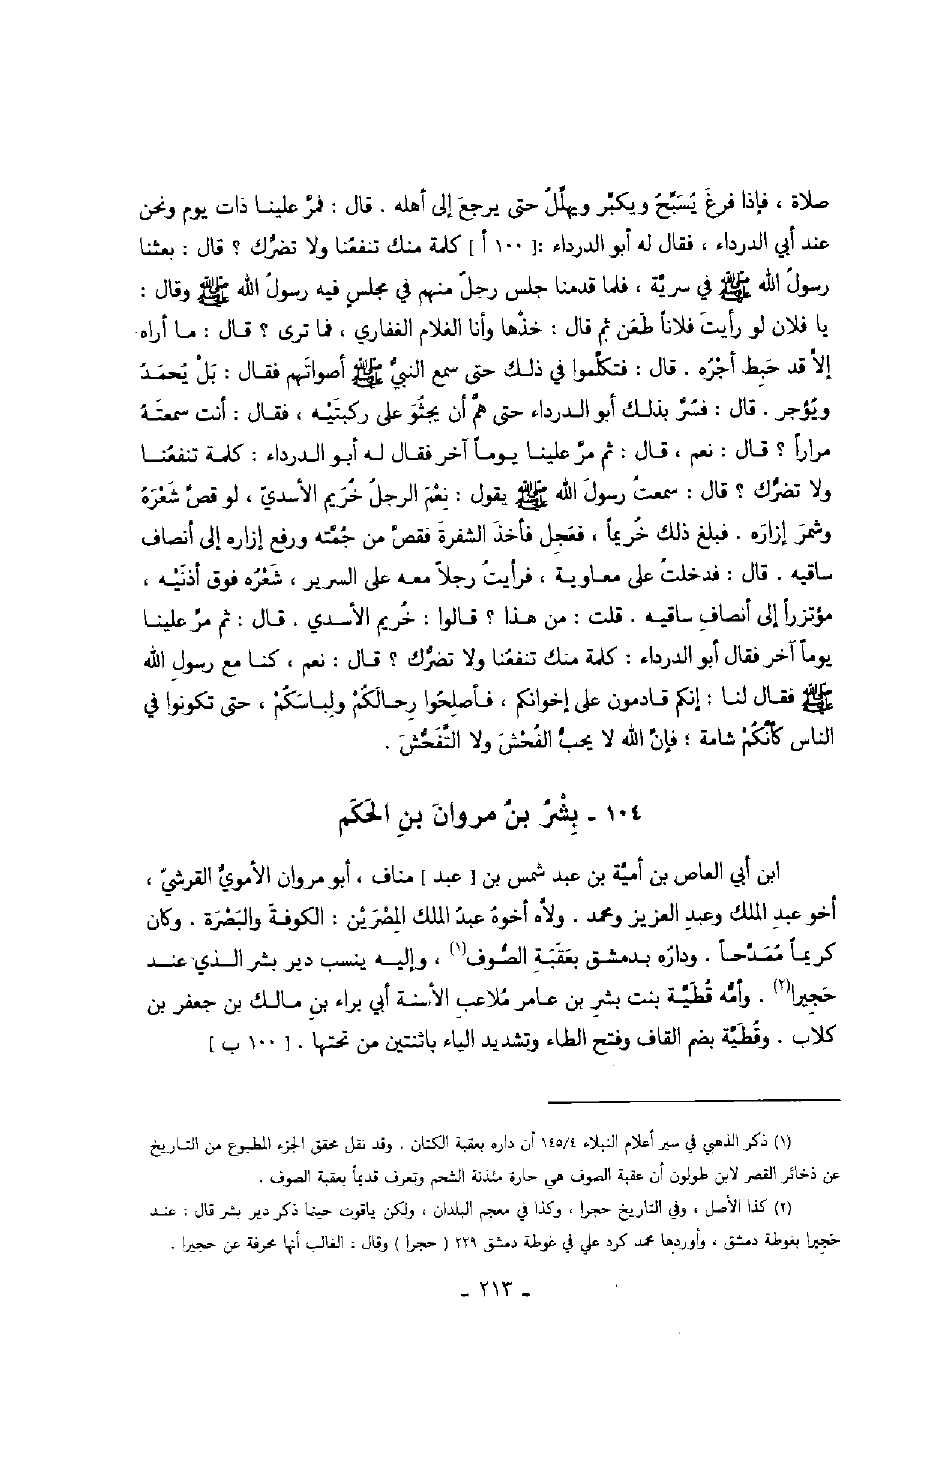 صلاة ، فإذا فرغَ يُسَبِّحُ ويكبّر ويهلّلُ حتى يرجعَ إلى أهله . قال : فمرَّ علينا ذات يوم ونحن
عند أبي الدرداء ، فقال له أبو الدرداء :[ ١٠٠ أ ] كلمة منك تنفعُنا ولا تضرُّك ؟ قال : بعثنا
رسولُ الله ﷺ في سريَّة ، فلما قدمنا جلس رجلٌ منهم في مجلسٍ فيه رسولُ الله ﷺ وقال :
يا فلان لو رأيتَ فلاناً طَعَن ثم قال : خذْها وأنا الغلام الغفاري ، فما ترى ؟ قال : ما أراه
إلاَّ قد حَبِط أجْرُه . قال : فتكلَّموا في ذلك حتى سمع النبيُّ ﷺ أصواتَهم فقال : بَلْ يُحمَدُ
ويُؤجر . قال : فسُرَّ بذلك أبو الدرداء حتى همَّ أن يجثُوَ على ركبتَيْه ، فقال : أنت سمعتَهُ
مراراً ؟ قال : نعم ، قال : ثم مرَّ علينا يوماً آخر فقال له أبو الدرداء : كلمة تنفعُنا
ولا تضرُّك ؟ قال : سمعتُ رسولَ الله ﷺ يقول : نِعْمَ الرجلُ خُرَيم الأسديّ ، لو قصَّ شَعْرَهُ
وشمرَ إزارَه . فبلغ ذلك خُريماً ، فعَجِل فأخذَ الشفرةَ فقصَّ من جُمَّته ورفع إزاره إلى أنصاف
ساقيه . قال : فدخلتُ على معاوية ، فرأيتُ رجلاً معه على السرير ، شَعْرُه فوق أذنَيْه ،
مؤتزراً إلى أنصافِ ساقيه . قلت : من هذا ؟ قالوا : خُريم الأسدي . قال : ثم مرَّ علينا
يوماً آخر فقال أبو الدرداء : كلمة منك تنفعُنا ولا تضرُّك ؟ قال : نعم ، كنا مع رسولِ الله
ﷺ فقال لنا : إنكم قادمون على إخوانكم ، فأصلِحُوا رِحالَكُمْ ولِباسَكُمْ ، حتى تكونوا في
الناس كأنَّكُمْ شامة ؛ فإنَّ الله لا يحبُّ الفُحْشَ ولا التَّفَحُّشَ .
١٠٤ - بِشْرُ بنُ مروانَ بنِ الحَكَم
ابن أبي العاص بن أميَّة بن عبد شمس بن [ عبد ] مناف ، أبو مروان الأمويُّ القرشيّ ،
أخو عبدِ الملك وعبدِ العزيز ومحمد . ولاَّه أخوهُ عبدُ الملك المِصْرَيْن : الكوفةَ والبَصْرَة . وكان
كريماً مُمَدَّحاً . ودارُه بدمشق بعَقَبَةِ الصُّوف(١) ، وإليه ينسب دير بشر الذي عند
حَجِيرا(٢) . وأمُّه قُطَيَّة بنت بشرِ بن عامر مُلاعبِ الأسنة أبي براء بنِ مالك بن جعفر بن
كلاب . وقُطَيَّة بضم القاف وفتح الطاء وتشديد الياء باثنتين من تحتها . [ ١٠٠ ب ]
(١) ذكر الذهبي في سير أعلام النبلاء ١٤٥/٤ أن داره بعقبة الكتان . وقد نقل محقق الجزء المطبوع من التاريخ
عن ذخائر القصر لابن طولون أن عقبة الصوف هي حارة مئذنة الشحم وتعرف قديماً بعقبة الصوف .
(٢) كذا الأصل ، وفي التاريخ حجرا ، وكذا في معجم البلدان ، ولكن ياقوت حينما ذكر دير بشر قال : عند
حَجيرا بغوطة دمشق ، وأوردها محمد كرد علي في غوطة دمشق ٢٢٩ ( حجرا ) وقال : الغالب أنها محرفة عن حجيرا .
- ٢١٣ -